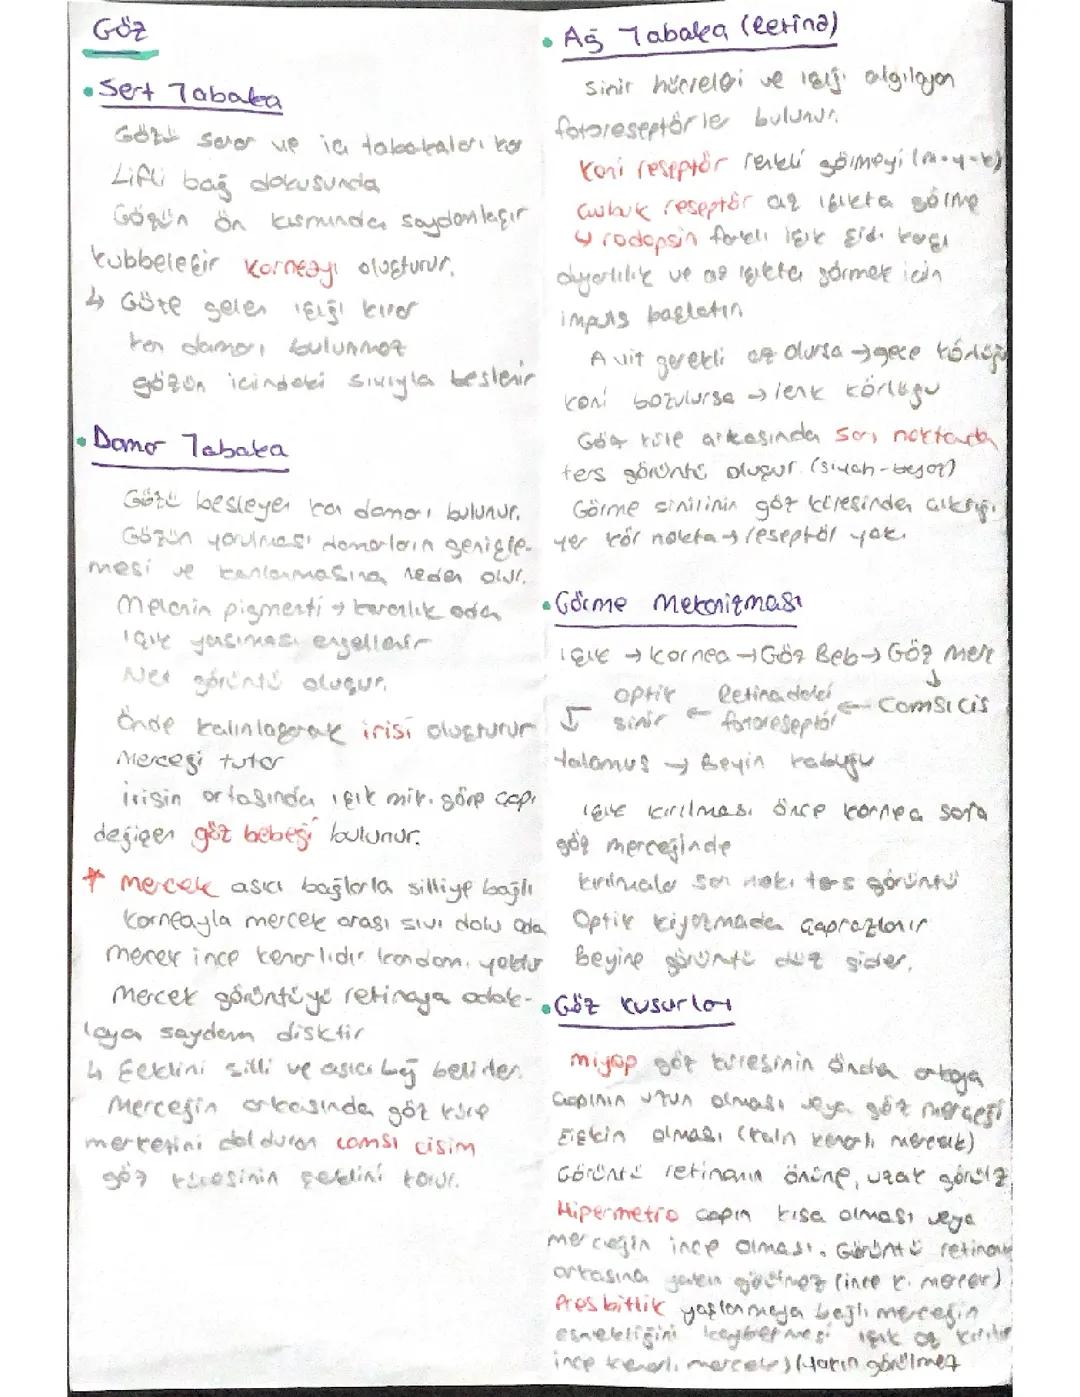 Göz
• Sert Tabaka
Gözü sarar ve iç tabakaları kor
Lifli bağ dokusunda
Gözün ön kısmında saydamlaşır
kubbeleşir korneayı oluşturur.
↳ Göze gelen ışığı kırar
kan damarı bulunmaz
gözün içindeki sıvıyla beslenir
• Damar Tabaka
Gözü besleyen kan damarı bulunur.
Gözün yorulması damarların genişle-
mesi ve kanlanmasına neden olur.
Melanin pigmenti → karanlık oda
ışık yansıması engellenir
Net görüntü oluşur.
Önde kalınlaşarak irisi oluşturur
Merceği tutar
irisin ortasında ışık mik. göre çapı
değişen göz bebeği bulunur.
* mercek asıcı bağlarla silliye bağlı
korneayla mercek arası sıvı dolu oda
mercek ince kenarlıdır kandamı yoktur
Mercek görüntüyü retinaya odak-
layan saydam disktir
↳ Şeklini silli ve asıcı bağ belirler.
Merceğin arkasında göz küre
merkezini dolduran camsı cisim
göz küresinin şeklini korur.
• Ağ Tabaka (Retina)
Sinir hücreleri ve ışığı algılayan
fotoreseptörler bulunur.
Koni reseptör renkli görmeyi (m-y-k)
Çubuk reseptör az ışıkta görme
↳ rodopsin farklı ışık şid. karşı
duyarlılık ve az ışıkta görmek için
impuls başlatır
A vit gerekli az olursa → gece körlüğü
koni bozulursa → renk körlüğü
Göz küre arkasında sarı noktada
ters görüntü oluşur. (siyah-beyaz)
Görme sinirinin göz küresinden çıktığı
yer kör nokta → reseptör yok.
• Görme Mekanizması
ışık → kornea → Göz Beb → Göz Mer
↓
↓ optik sinir ← Retinadaki fotoreseptör ← Camsı cis
talamus → Beyin kabuğu
ışık kırılması önce kornea sora
göz merceğinde
kırılmalar sarı nokt ters görüntü
Optik kiyazmada çaprazlanır
Beyine görüntü düz gider.
• Göz Kusurları
miyop göz küresinin önden arkaya
çapının uzun olması veya göz merceği
şişkin olması (kalın kenarlı mercek)
Görüntü retinanın önüne, uzak görülz
Hipermetro çapın kısa olması veya
merceğin ince olması. Görüntü retinanın
arkasına yakın görülmez (ince k. mercek)
Presbitlik yaşlanmaya bağlı merceğin
esnekliğini kaybetmesi ışık az kırılır
ince kenarlı mercek) Yakın görülmez